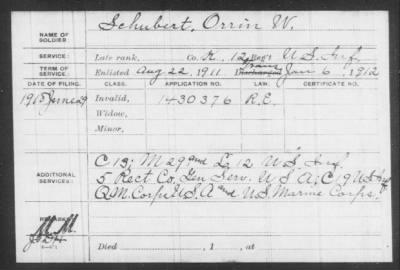 NAME OF SOLDIER: Schubert, Orrin W.
SERVICE: Late rank, Co. K, 12 Reg't U.S. Inf.
TERM OF SERVICE: Enlisted Aug 22, 1911 Trans Discharged Jan 6, 1912
DATE OF FILING. CLASS. APPLICATION NO. LAW. CERTIFICATE NO.
1915 June 29 Invalid, 1430376 R.E.
Widow,
Minor,
ADDITIONAL SERVICES: C 13; M 29 and L 12 U.S. Inf.
5 Rect. Co. Gen Serv. U.S.A; C 19 U.S Inf
Q.M. Corps U.S.A and U.S. Marine Corps.
REMARKS:
Died , 1 , at